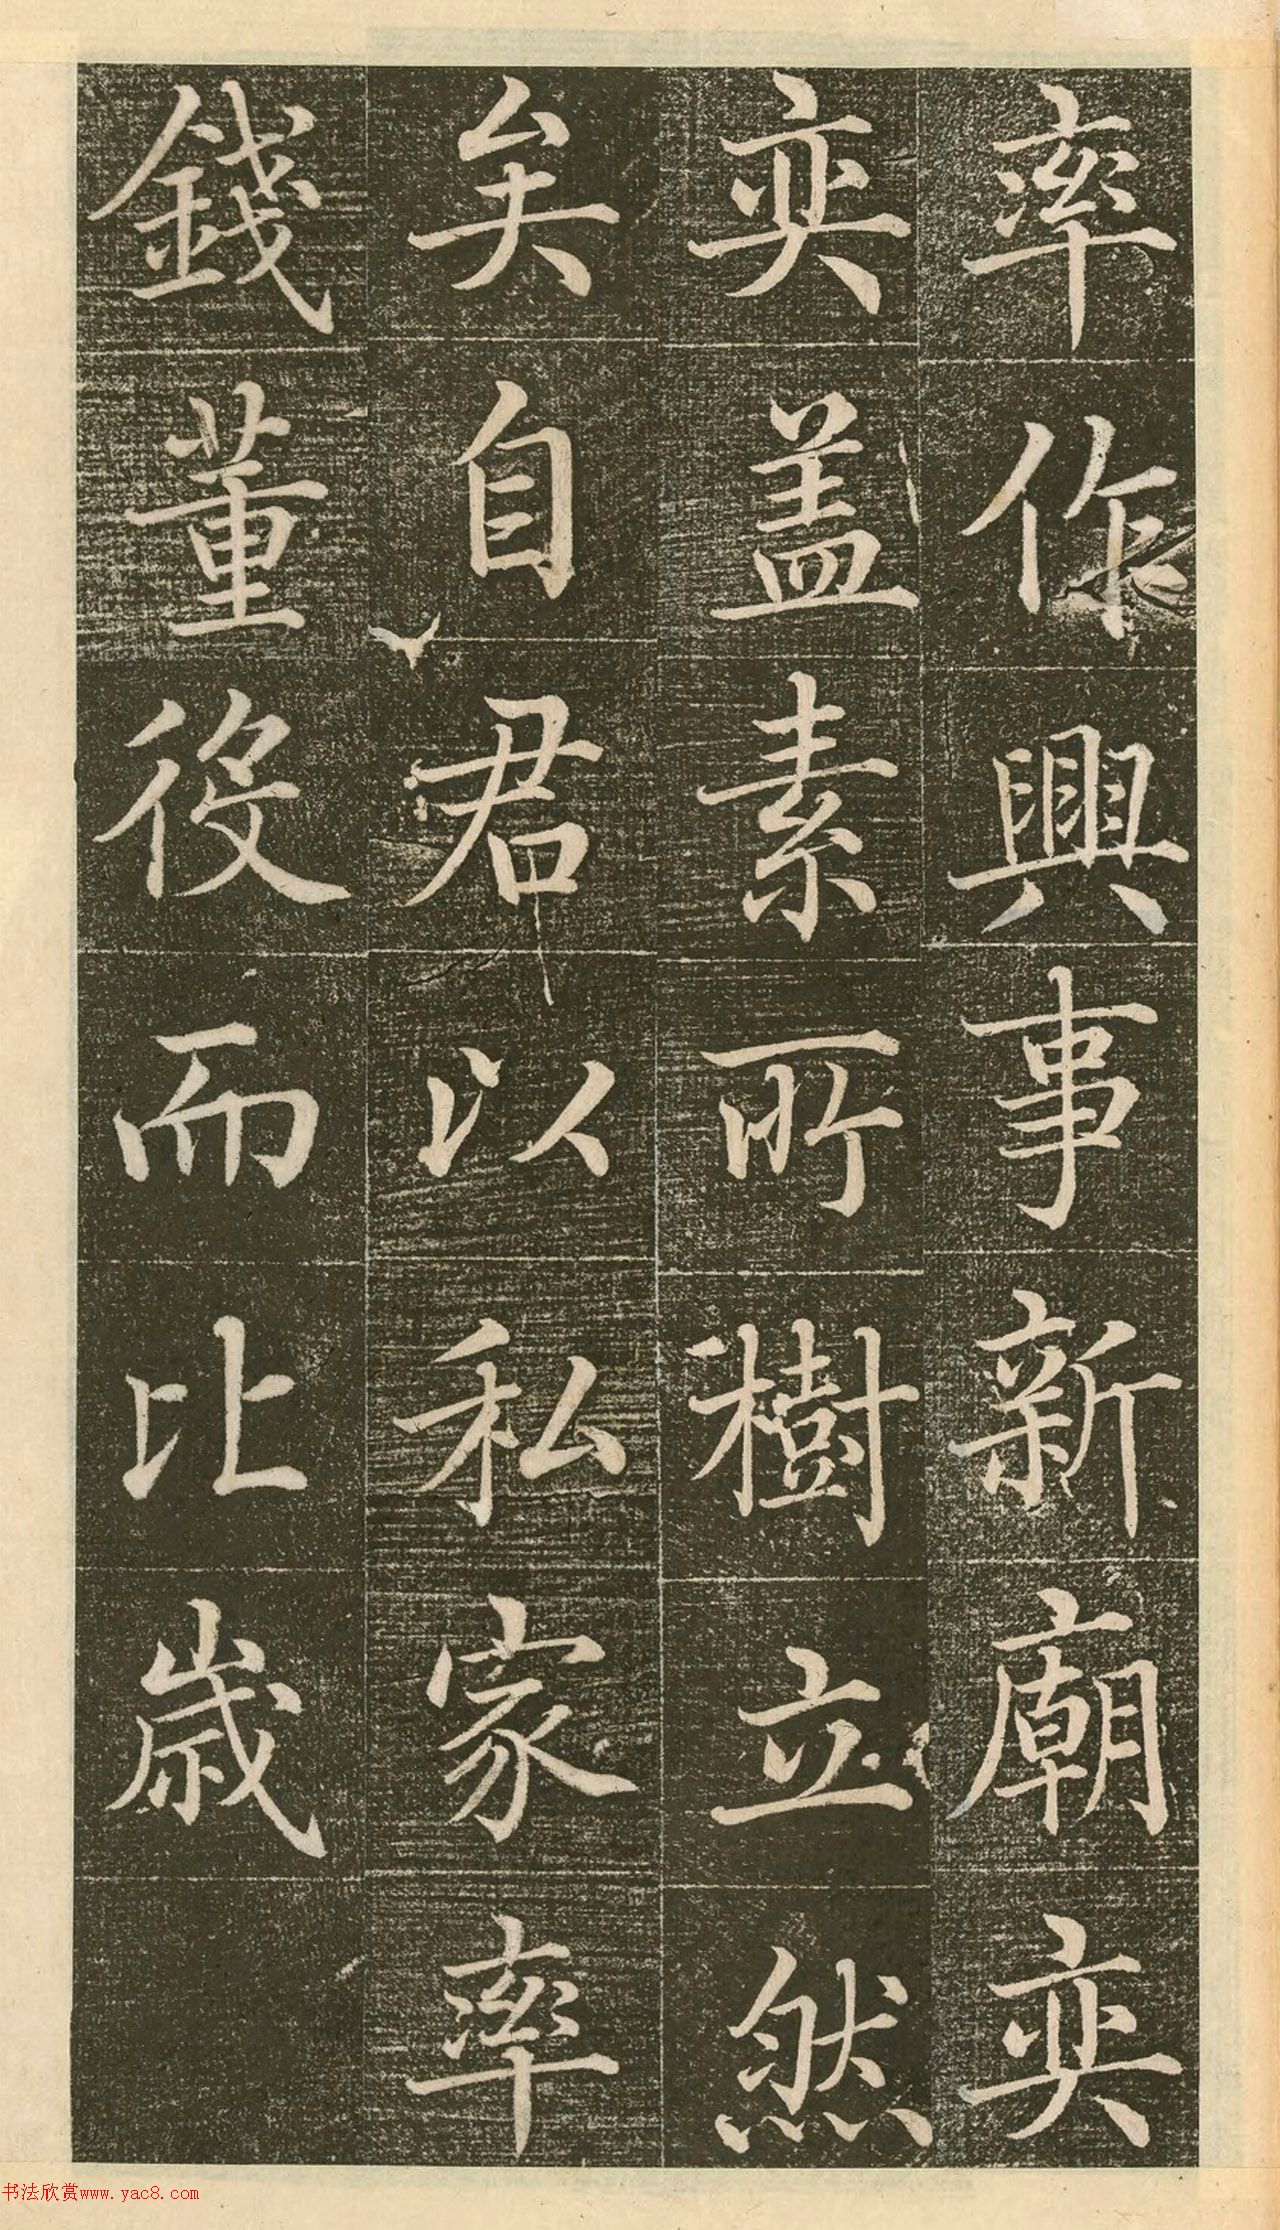 率作興事新廟奕
奕蓋素所樹立然
矣自君以私家率
錢董役而比歲
书法欣赏www.yac8.com